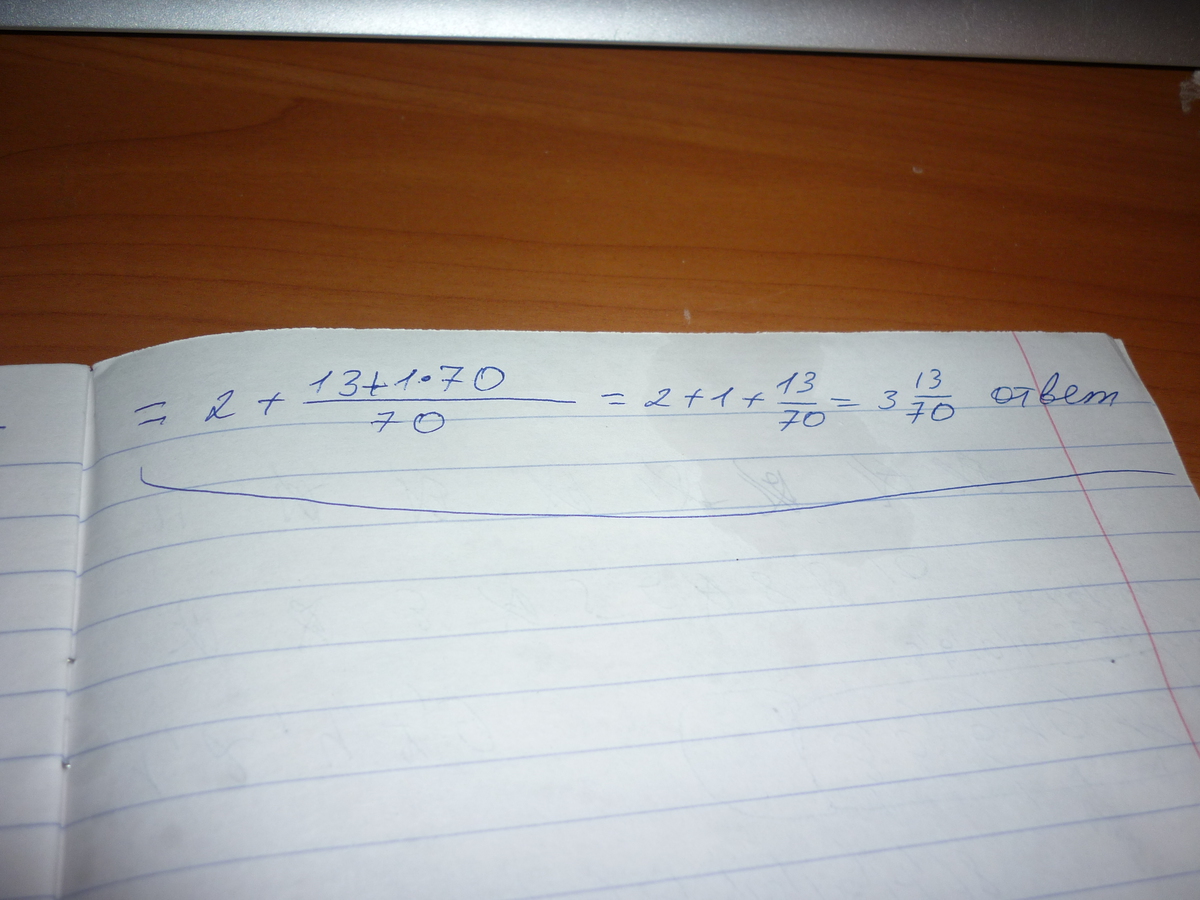 = 2 + 13+1·70/70 = 2+1+13/70 = 3 13/70 ответ